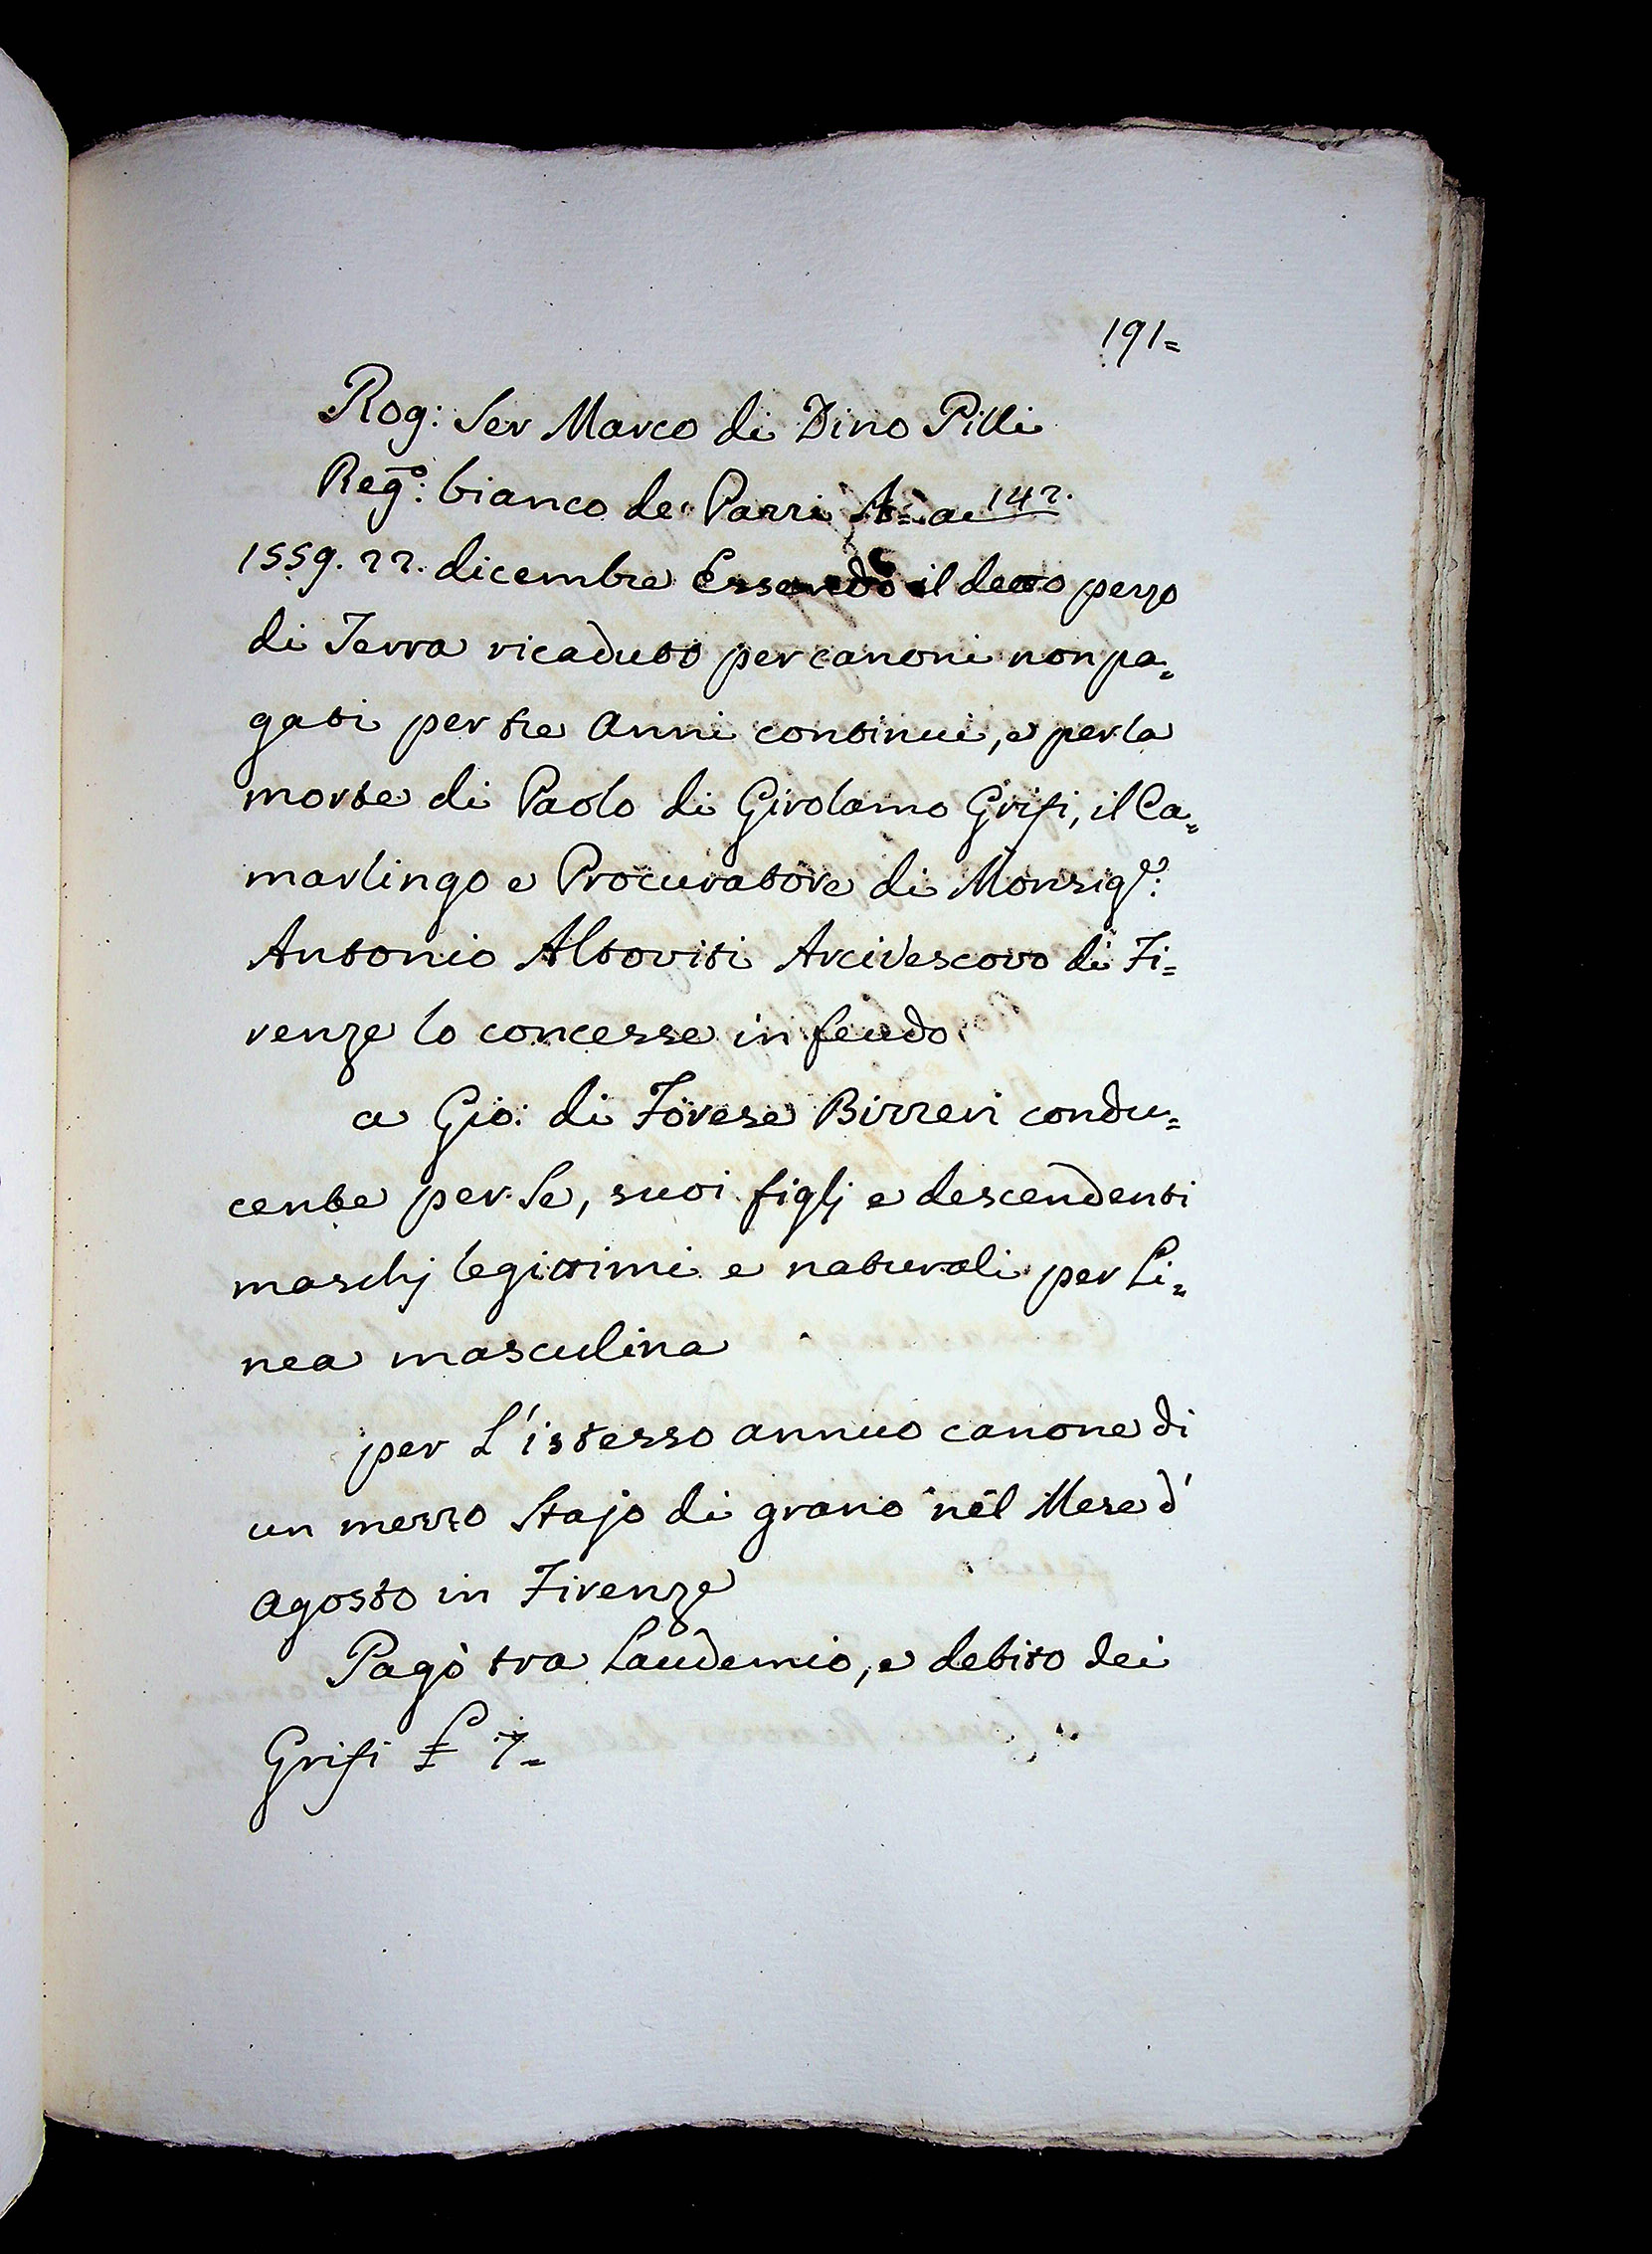 191=
Rog: Ser Marco di Dino Pilli
Reg.º: bianco de Pazzi A= a 142.
1559. 22. dicembre Essendo il detto pezzo
di Terra ricaduto per canoni non pa=
gati per tre Anni continui, e per la
morte di Paolo di Girolamo Grifi, il Ca=
marlingo e Procuratore di Monsig.r:
Antonio Altoviti Arcivescovo di Fi=
renze lo concesse in feudo
a Gio: di Forese Bizzeri condu=
cente per Se, suoi figlj e descendenti
maschj legittimi e naturali per Li=
nea masculina
per L'istesso annuo canone di
un mezzo Stajo di grano nel Mese d'
Agosto in Firenze
Pagò tra Laudemio, e debito dei
Grifi £ 7=